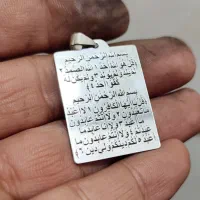 بسم الله الرحمن الرحيم
قل هو الله احد ١ الله الصمد ٢
لم يلد ولم يولد ٣ ولم يكن له
كفوا احد ٤
بسم الله الرحمن الرحيم
قل يا ايها الكافرون ١ لا اعبد
ما تعبدون ٢ ولا انتم عابدون
ما اعبد ٣ ولا انا عابد ما
عبدتم ٤ ولا انتم عابدون ما
اعبد ٥ لكم دينكم ولي دين ٦